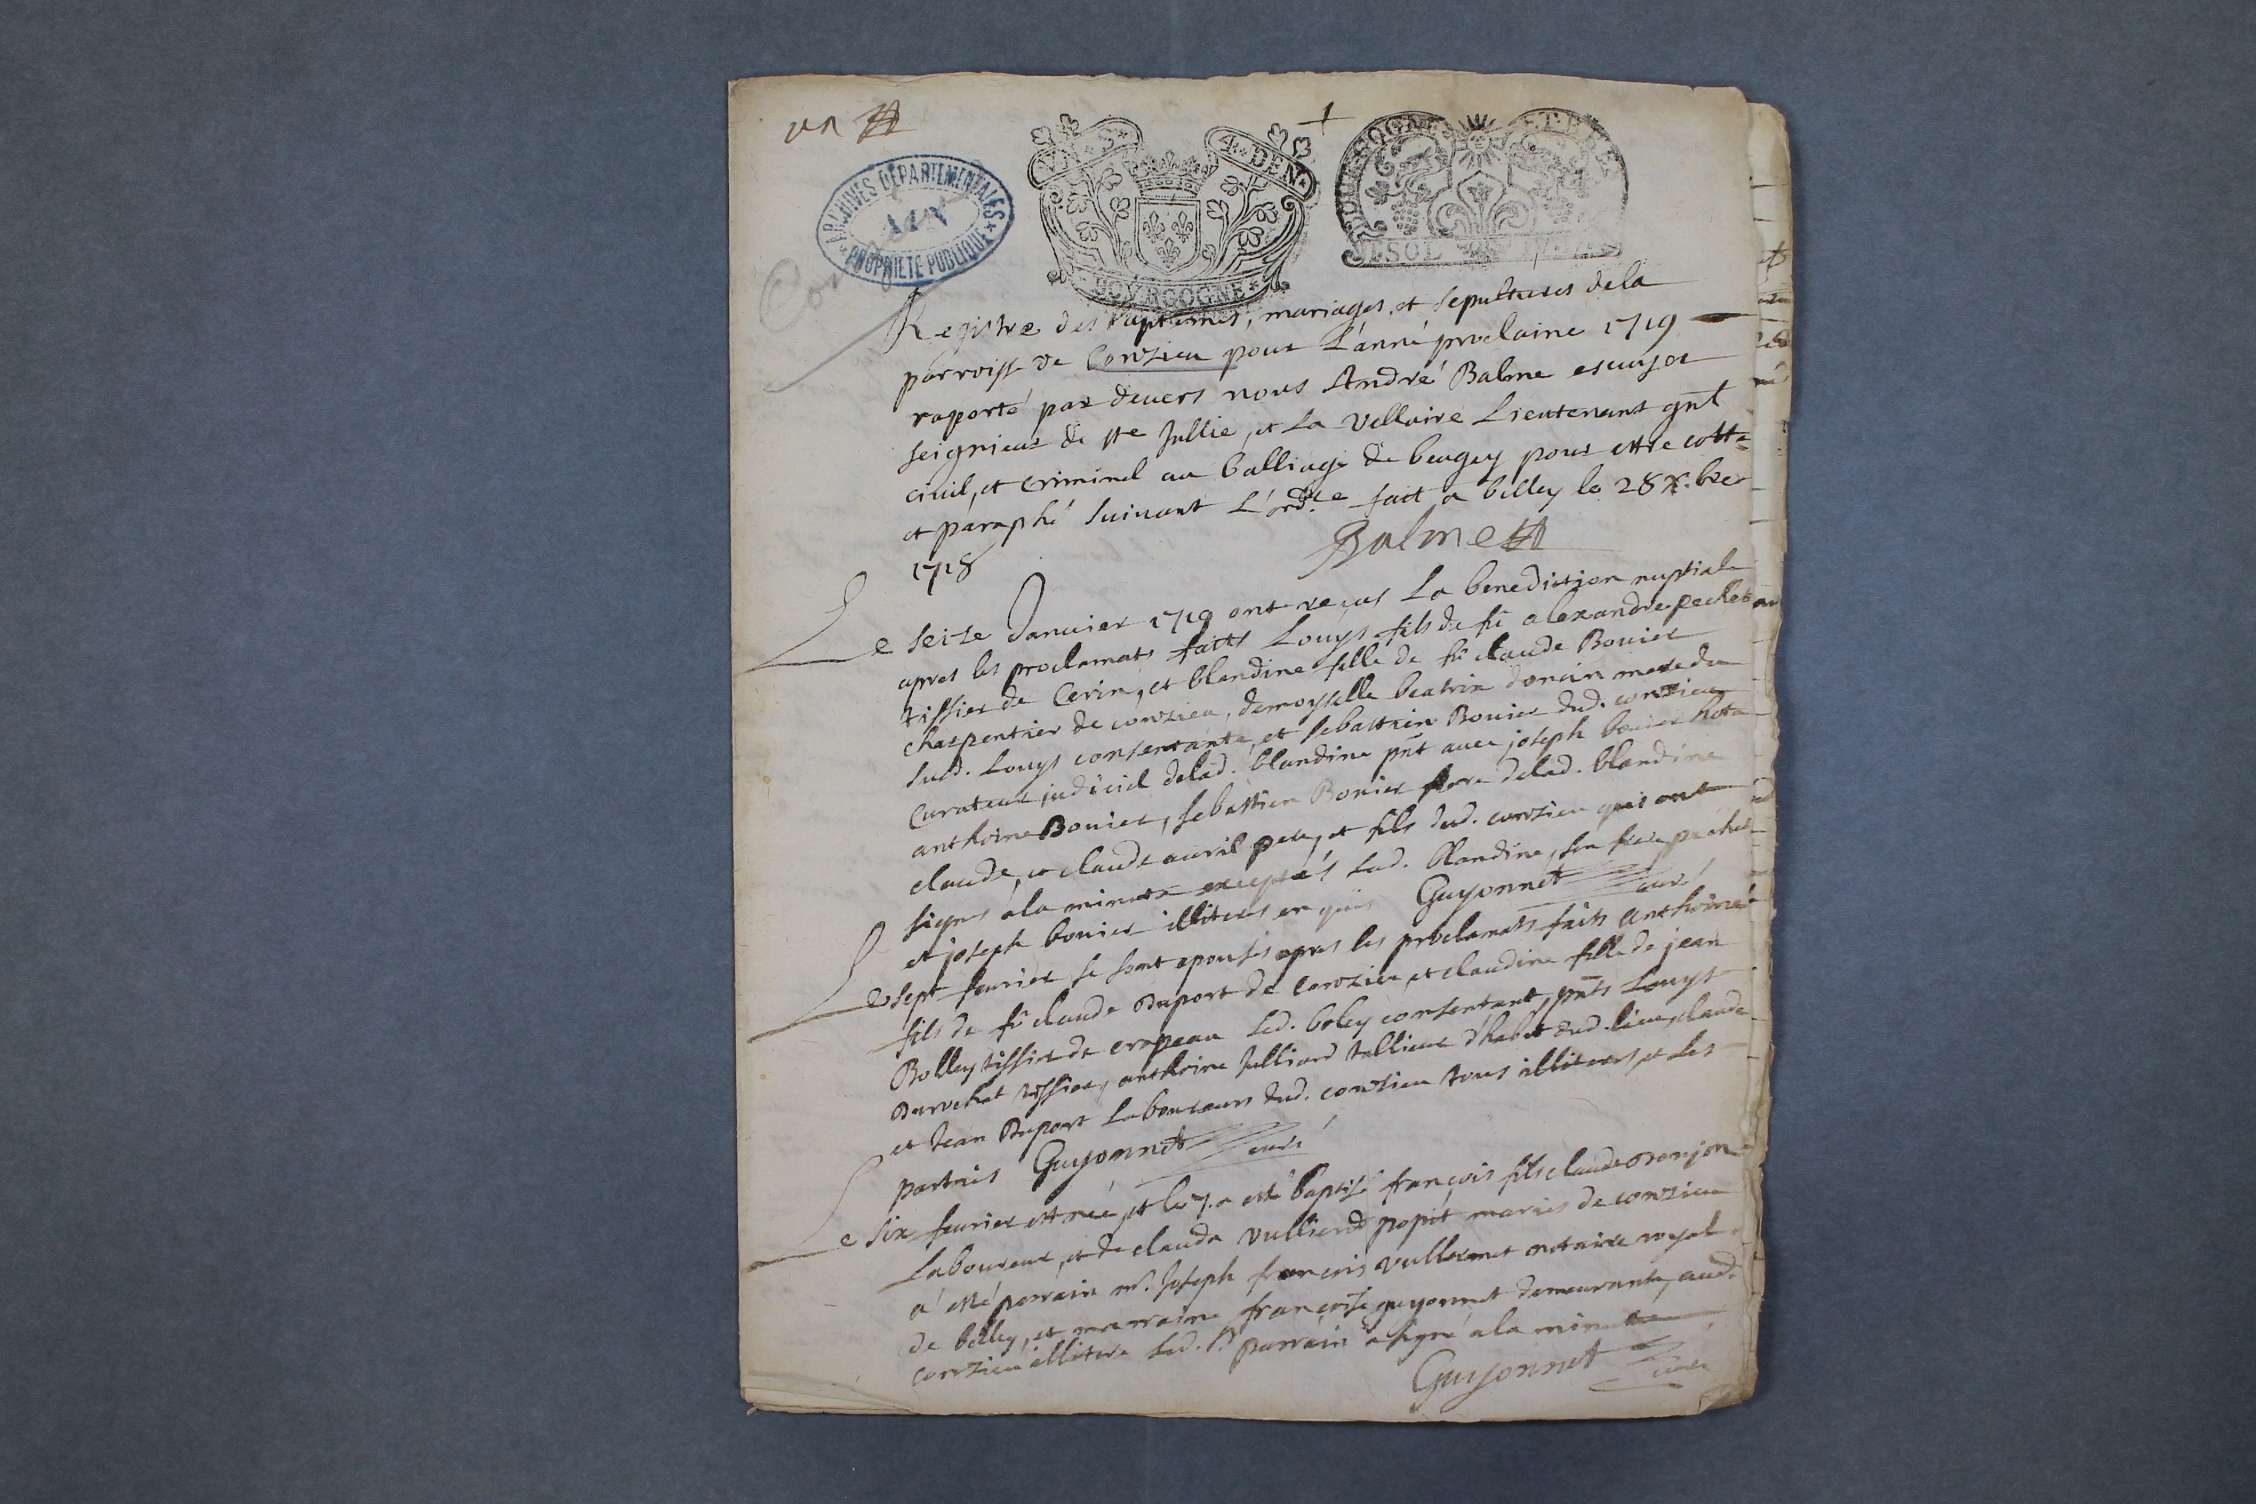 un
ARCHIVES DÉPARTEMENTALES
Ain
PROPRIÉTÉ PUBLIQUE
4 DEN
BOURGOGNE
Registre des baptesmes, mariages, et sepultures dela
parroisse de Conzieu pour L'année prochaine 1719
raporté par devers nous André Balme escuyer
seignieur de Ste Jullie, et La Vellaire Lieutenant gnl
civil, et criminel au balliage de beugey pour estre cotté
et paraphé suivant L'ordce fait a belley le 28 xbre
1718
Balme
Le seize Janvier 1719 ont reçus La benediction nuptiale
apres les proclamats faits Louys fils de fû alexandre pechet
tissier de Cerin, et blandine fille de fû claude Bovier
charpentier de conzieu, demoyselle beatrix doncin mere du
sud. Louys consentante, et sebastien Bovier dud. conzieu
Curateur judiciel delad. blandine pnt avec joseph bovier
anthoine Bovier, sebastien Bovier frere delad. blandine
claude, et claude avril pere, et fils dud. conzieu qui ont
signés a la minute exceptés lad. blandine, son frere
et joseph bovier illiteres enquis Guyonnet curé
Le sept fevrier se sont epousés apres les proclamats faits anthoine
fils de fû claude Duport de Conzieu, et claudine fille de jean
Bolley tissier de crapeau led. boley consentant, pnts Louys
tissier, anthoine Julliard tallieur d'habit dud. lieu, claude
et Jean Duport Laboureurs dud. conzieu tous illiteres, et les
parties Guyonnet curé
Le six fevrier est née, et le 7. a esté baptisé françois fils claude
Laboureur, et de claude popit mariés de conzieu
a esté parrain mr. Joseph françois vullermet notaire royal
de belley, et marraine françoise guyonnet demeurante, aud.
conzieu illitere Led. Sr parrain a signé a la minute
Guyonnet curé